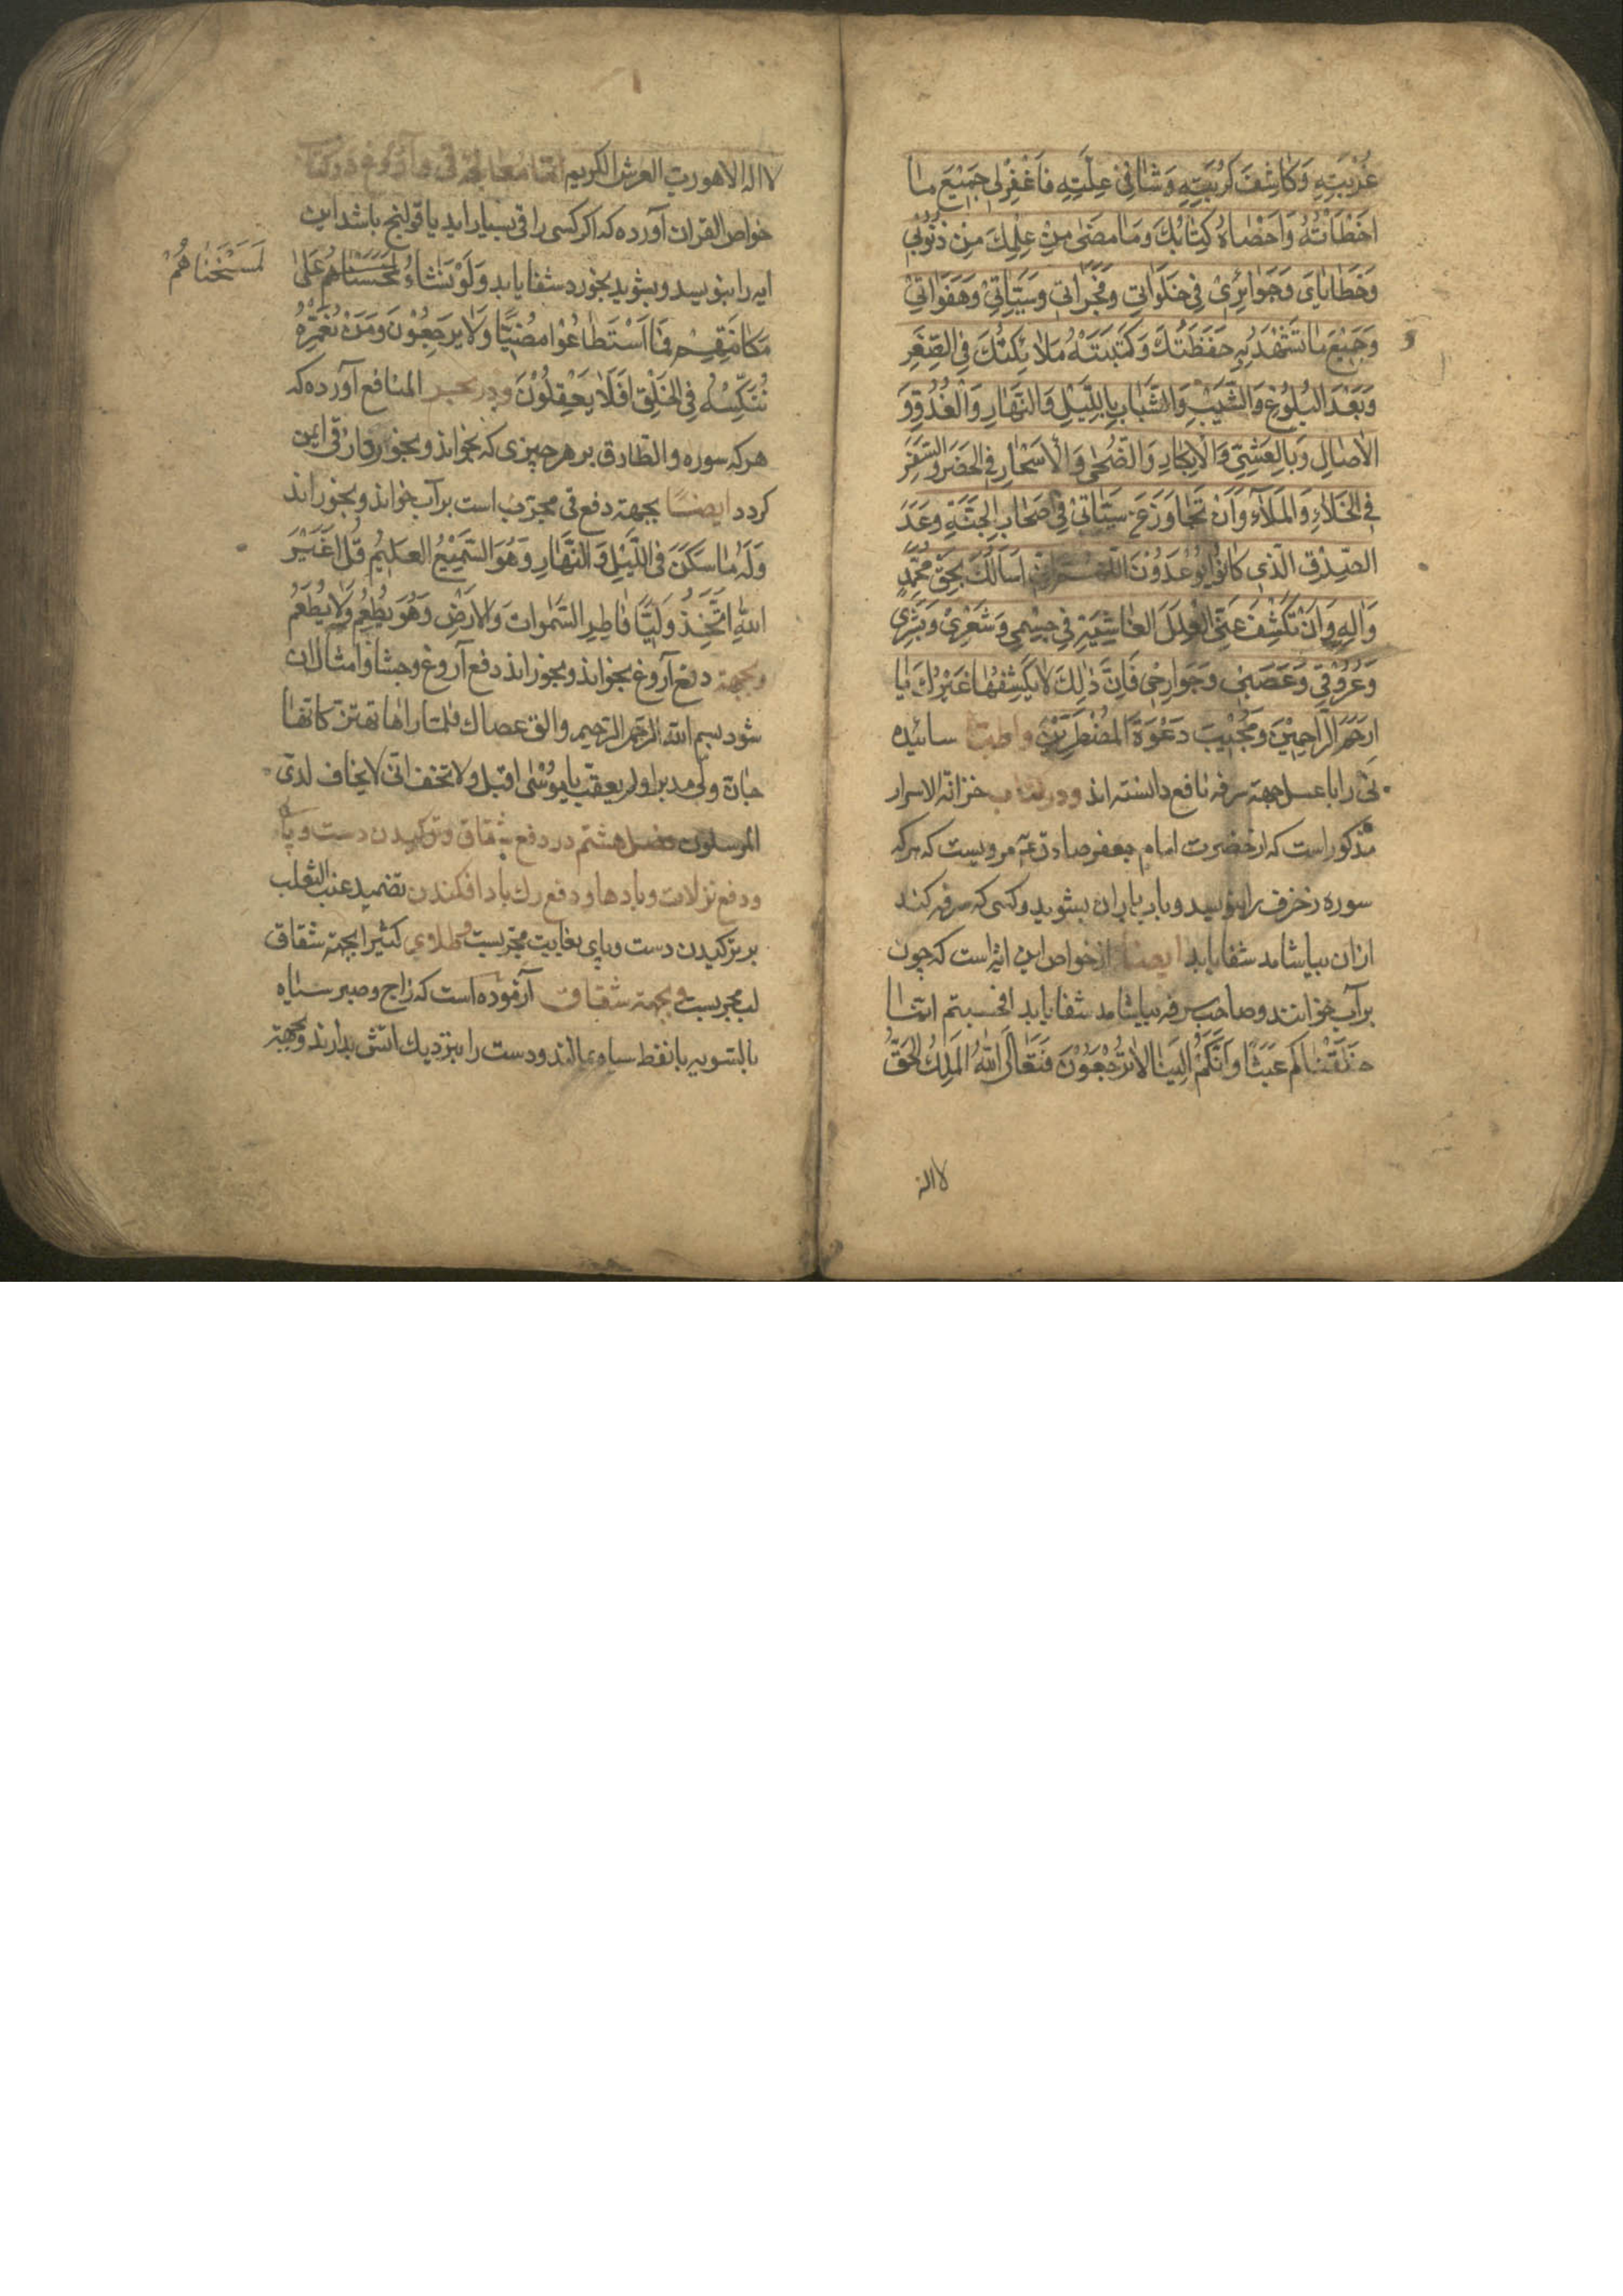 غُرْبَتِهِ وَكَاشِفَ كُرْبَتِهِ وَشَافِیْ عِلَّتِهِ فَاغْفِرْلِی جَمِیْعَ مٰا
اَخْطَاْتُهُ وَاَحْصٰاهُ كِتٰابُكَ وَمٰا مَضٰی مِنْ عِلْمِكَ مِن ذُنُوْبِی
وَخَطٰایٰایَ وَجَوٰائِرِیْ فِی خَلَوٰاتِی وَفَجَرٰاتِی وَسَیِّئٰاتِیْ وَهَفَوٰاتِیْ
وَجَمِیْعَ مٰا تَشْهَدُ بِهِ حَفَظَتُكَ وَكَتَبَتْهُ مَلٰائِكَتُكَ فِی الصِّغَرِ
وَبَعْدَ البُلُوْغِ وَالشَّیْبِ وَالشَّبٰابِ بِاللَّیْلِ وَالنَّهٰارِ وَالْغُدُوِّ وَ
الْاٰصٰالِ وَبِالعَشِیِّ وَالْاِبْكٰارِ وَالضُّحٰی وَالْاَسْحٰارِ فِی الحَضَرِ وَالسَّفَرِ
فِی الْخَلٰاءِ وَالْمَلَآءِ وَاَنْ تَجٰاوَزَ عَنْ سَیِّئٰاتِیْ فِی اَصْحٰابِ الجَنَّةِ وَعْدَ
الصِّدْقِ الَّذِی كٰانُوا یُوْعَدُوْنَ اللّٰهُمَّ اِنِّیْ اَسْاَلُكَ بِحَقِّ مُحَمَّدٍ
وَاٰلِهِ وَاَنْ تَكْشِفَ عَنِّی الْعِلَلَ الغٰاشِیَةِ فِی جِسْمِی وَشَعْرِیْ وَبَشَرِی
وَعُرُوْقِی وَعَصَبِی وَجَوَارِحِی فَاِنَّ ذٰلِكَ لٰا یَكْشِفُهٰا غَیْرُكَ یٰا
اَرْحَمَ الرَّاحِمِیْنَ وَمُجِیْبَ دَعْوَةِ الْمُضْطَرِّیْنَ واطبّا سائیده
نی را با عسل جهة سرفه نافع دانسته اند ودر کتاب خزانة الاسرار
مذکور است که از حضرت امام جعفر صادق عم مرویست که هرکه
سوره زخرف را بنویسد و بآب باران بشوید و کسی که سرفه کند
ازان بیاشامد شفا یابد ایضا از خواص این ایه است که چون
برآب خوانند و صاحب سرفه بیاشامد شفا یابد افحسبتم انّمٰا
خَلَقْنٰاكُم عَبَثًا وَاَنَّكُمْ اِلَیْنٰا لٰا تُرْجَعُوْنَ فَتَعٰالَی اللّٰهُ المَلِكُ الحَقُّ
لا اله
لا اله الا هو رب العرش الکریم امّا معالجۀ قی و آروغ در کتاب
خواص القران آورده که اکر کسی را قی بسیار اید یا قولنج باشد این
ایه را بنویسد و بشوید بخورد شفا یابد وَلَوْ نَشٰاءُ لَمَسَخْنٰاهُمْ عَلیٰ
لَمَسَخْنٰاهُمْ
مَكٰانَتِهِمْ فَمَا اسْتَطٰاعُوْا مُضِیًّا وَلٰا یَرْجِعُوْنَ وَمَنْ نُعَمِّرْهُ
نُنَكِّسْهُ فِی الخَلْقِ اَفَلٰا یَعْقِلُوْنَ ودر بحر المنافع آورده که
هرکه سوره والطارق بر هر چیزی که بخواند و بخورد از قی ایمن
کردد ایضًا بجهة دفع قی مجرّب است برآب خواند و بخوراند
وَلَهُ مٰا سَكَنَ فِی اللَّیْلِ وَالنَّهٰارِ وَهُوَ السَّمِیْعُ العَلِیْمُ قُلْ اَغَیْرَ
اللّٰهِ اَتَّخِذُ وَلِیًّا فٰاطِرِ السَّمٰوٰات وَالاَرْضِ وَهُوَ یُطْعِمُ وَلٰا یُطْعَمُ
وبجهة دفع آروغ بخواند و بخوراند دفع آروغ و جشا و امثال ان
شود بسم الله الرحمن الرحیم والق عصاك فلمّا راٰها تهتزّ کانّها
جانّ ولّی مدبرا ولم یعقّب یا مُوسٰی اقبل ولا تخف انّی لایخاف لدیّ
المرسلون فصل هشتم در دفع شقاق و ترکیدن دست و پا
ودفع نزلات و بادها و دفع رك باد افکندن تضمید عنب الثعلب
بر ترکیدن دست و پای بغایت مجرّبست و طلاوی کثیرا بجهة شقاق
لب مجربست و بجهة شقاق آزموده است که زاج و صبر سیاه
بالتسویه با نفط سیاه بمالند و دست را بنزدیك اتش بدارند و بجهة